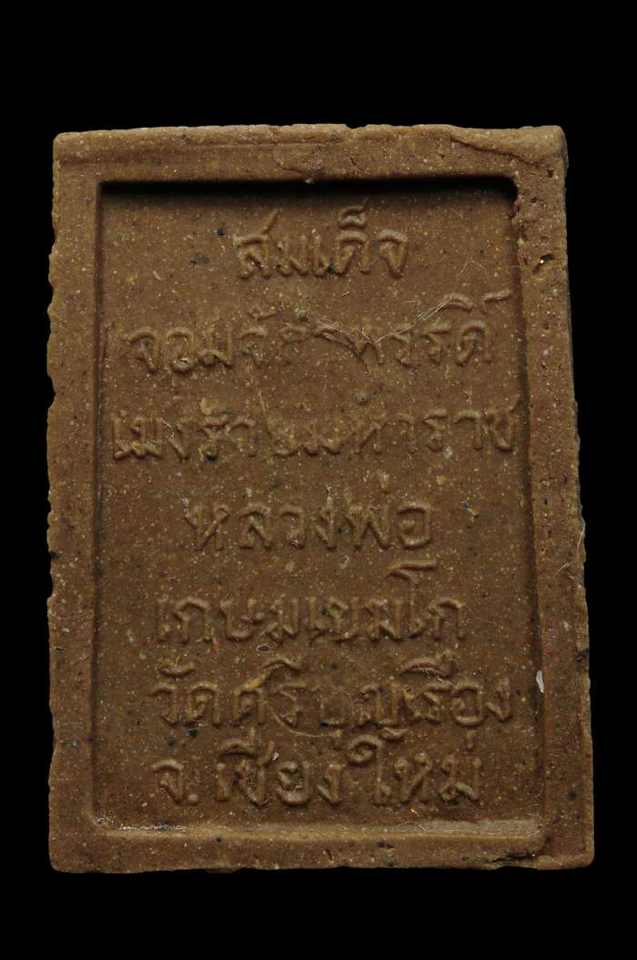 สมเด็จ
จอมจักรพรรดิ์
เมงรายมหาราช
หลวงพ่อ
เกษมเขมโก
วัดศรีบุญเรือง
จ.เชียงใหม่